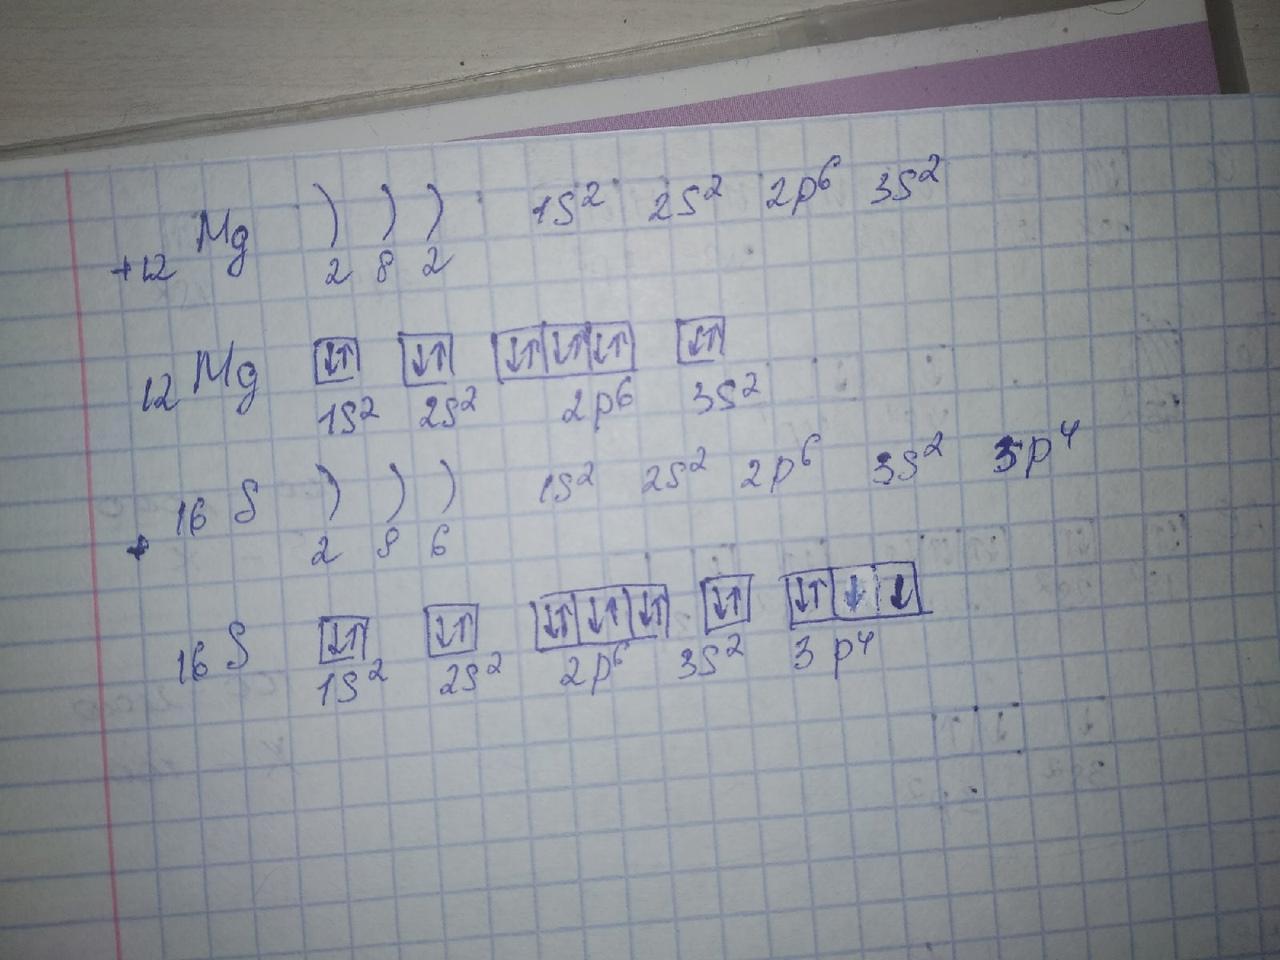 +12 Mg ) ) ) 1s² 2s² 2p⁶ 3s²
2 8 2
12 Mg ↓↑ ↓↑ ↓↑ ↓↑ ↓↑ ↓↑
1s² 2s² 2p⁶ 3s²
+16 S ) ) ) 1s² 2s² 2p⁶ 3s² 3p⁴
2 8 6
16 S ↓↑ ↓↑ ↓↑ ↓↑ ↓↑ ↓↑ ↓↑ ↓ ↓
1s² 2s² 2p⁶ 3s² 3p⁴